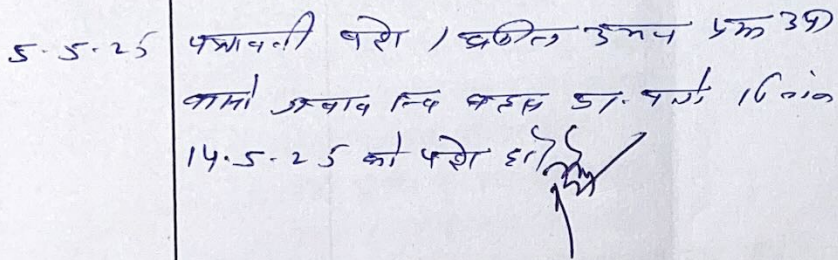 5.5.25 पत्रावली पेश । वकील उभय पक्ष उप०
वास्ते जवाब व बहस प्रा. पत्र दिनांक
14.5.25 को पेश हो।